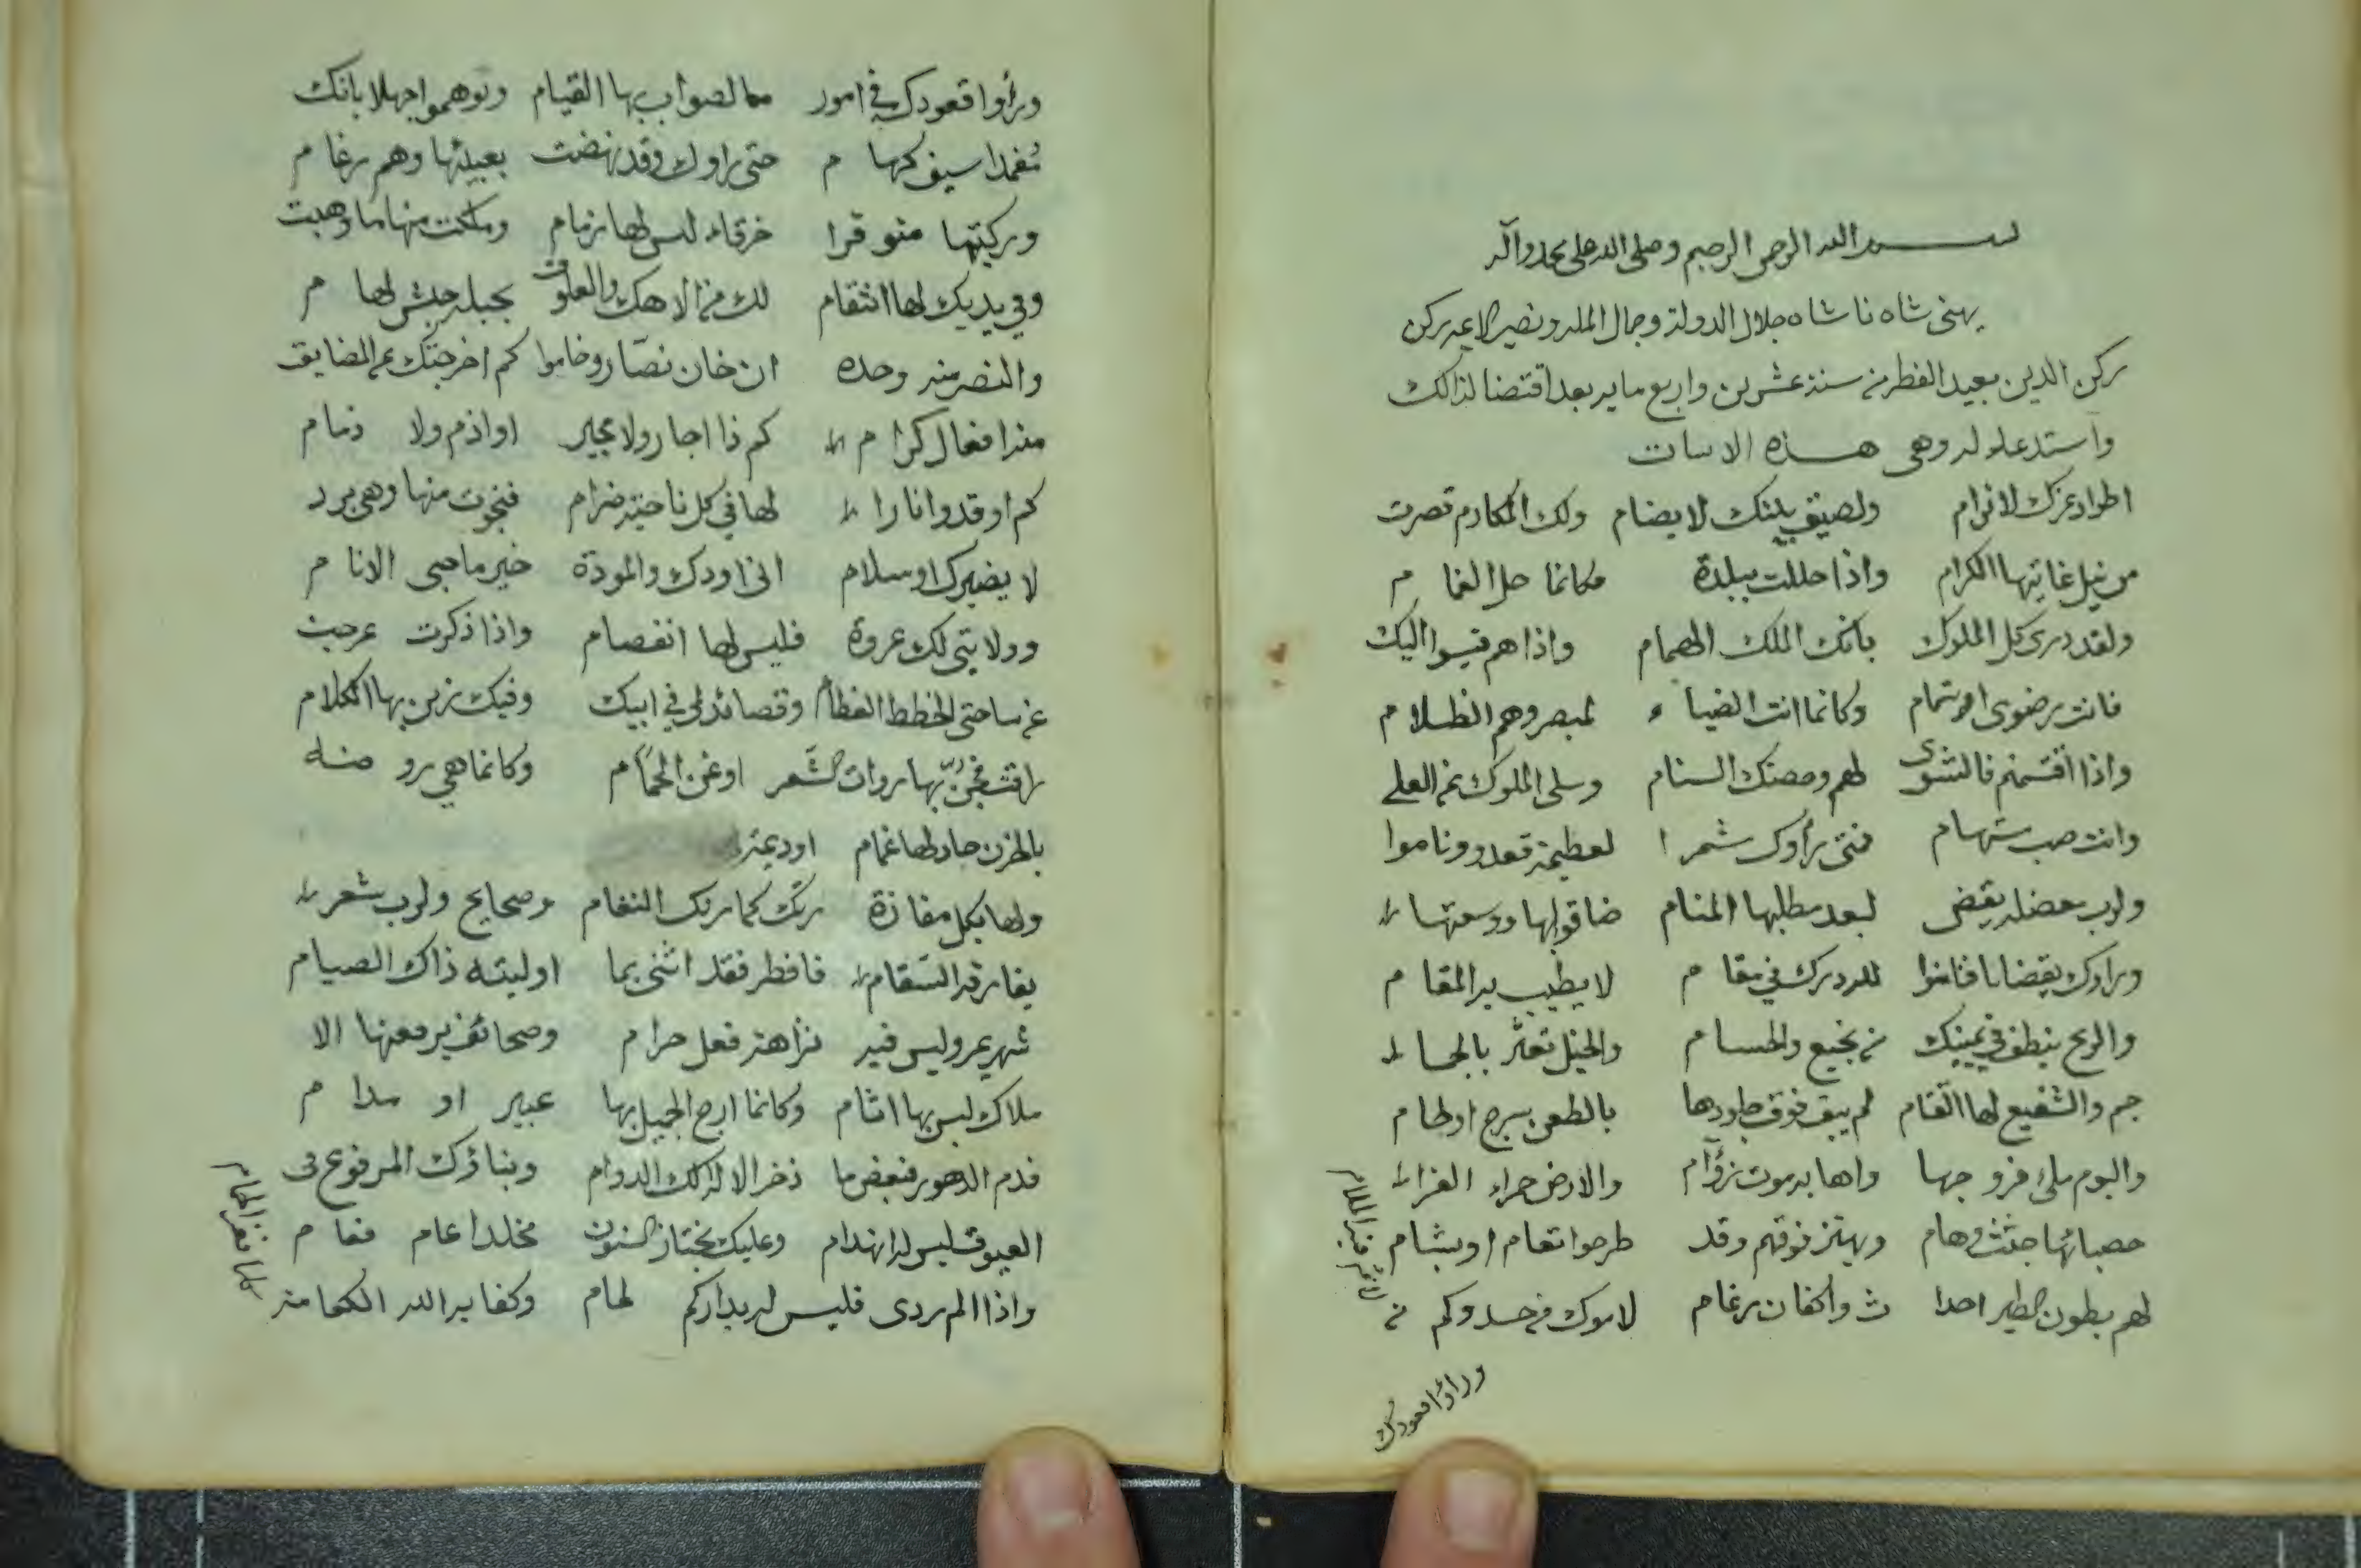 بسم الله الرحمن الرحيم وصلى الله على محمد وآله
يهنى شاه ناشاه جلال الدولة وجمال الملة ونصير الاعيه ركن
ركن الدين بعيد الفطر من سنة عشرين واربع مايه بعد اقتضا لذالك
واستدعاء له وهى هذه الابيات
اطواد عزك لا ترام ولصيق بيتك لا يضام ولك المكارم قصرت
من نيل غايتها الكرام واذا حللت ببلدة فكانما حل الغمام
ولقد درى كل الملوك بانك الملك الهمام واذا هم قيسوا اليك
فانت رضوى او شمام وكانما انت الضياء لمبصر وهم الظلام
واذا اقتسمتم فالشوى لهم وحصتك السنام وسلى الملوك عن العلى
وانت صب مستهام فمتى رأوك مشمرا لعظيمة قعدوا وناموا
ولرب معضلة يقض لبعد مطلبها المنام ضاقوا بها ووسعتها
وراوك يقضانا فناموا لله درك فى مقام لا يطيب به المقام
والرمح ينطف فى يمينك من نجيع والحسام والخيل تعثر بالجما
جم والشفيع لها القتام لم يبق فوق جلودها بالطعن سرج او لجام
والبوم ملئ فروجها واهابه موت زؤام والارض حمراء الغرا
حصبائها جثث وهام ويهتز فوقهم وقد طرحوا ثغام او بشام
لهم بطون الطير احدا ث واكفان رغام لاموك من حسد وكم من
وراوا قعودك
ورأوا قعودك فى امور ما الصواب بها القيام وتوهموا جهلا بانك
مغمدا سيف كهام حتى راوك وقد نهضت بعبئها وهم رغام
وركبتها متوقرا خرقاء ليس لها زمام وملكت منها ما وهبت
وفى يديك لها انتقام لك من الاهك والعلوق بحبله جيش لهام
والنصر منه وحده ان خان نصّار وخاموا كم اخرجتك عن المضايق
منه افعال كرام كم ذا اجار ولا مجير او اذم ولا ذمام
كم اوقدوا نارا لها فى كل ناحية ضرام فنجوت منها وهى برد
لا يضيرك او سلام انى اودك والمودة خير ما حبى الانام
وولايتى لك عروة فليس لها انفصام واذا ذكرت عرجت
عن ساحتى الخطط العظام وقصائد لى فى ابيك وفيك زين بها الكلام
راقت فجنّ بها روات الشعر او غنى الحمام وكانما هى روضة
بالحزن جاد لها غمام او ديمة
ولها بكل مفازة رتك كما رتك النعام وصحايح ولرب شعر
يفارقه السقام فافطر فقد اثنى بما اوليته ذاك الصيام
شهر يمر وليس فيه نزاهة فعل حرام وصحائف يرفعنها الا
ملاك ليس بها اثام وكانما ارج الجميل بها عبير او مدام
فدم الدهور فبعض ما ذخر الاله لك الدوام وبنائك المرفوع فى
العيوق ليس له انهدام وعليك يجتاز السنون مخلدا عام فعام
واذا الم ردى فليس له بداركم لمام وكفا به الله الكفا منه